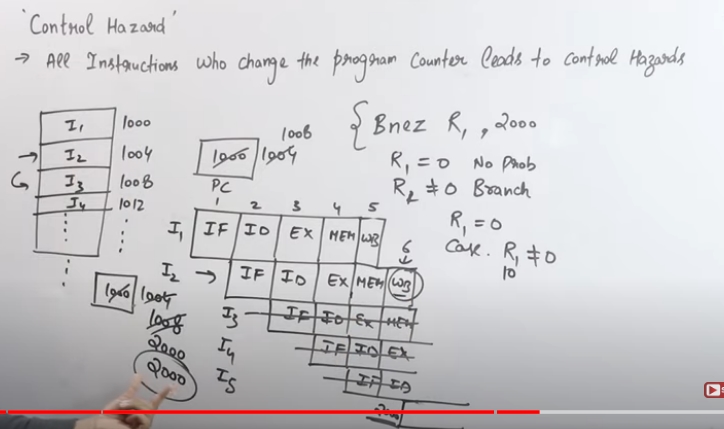 'Control Hazard'
→ All Instructions who change the program counter leads to control Hazards
I1 1000
I2 1004
I3 1008
I4 1012
1008
1000 1004
PC
{ Bnez R1, 2000
R1 = 0 No Prob
R2 ≠ 0 Branch
R1 = 0
Case. R1 ≠ 0
10
1 2 3 4 5
I1 IF ID EX MEM WB
6
I2 → IF ID EX MEM WB
1000 1004
1008
I3 IF ID EX MEM
2000
I4 IF ID EX
2000
I5 IF ID
2000